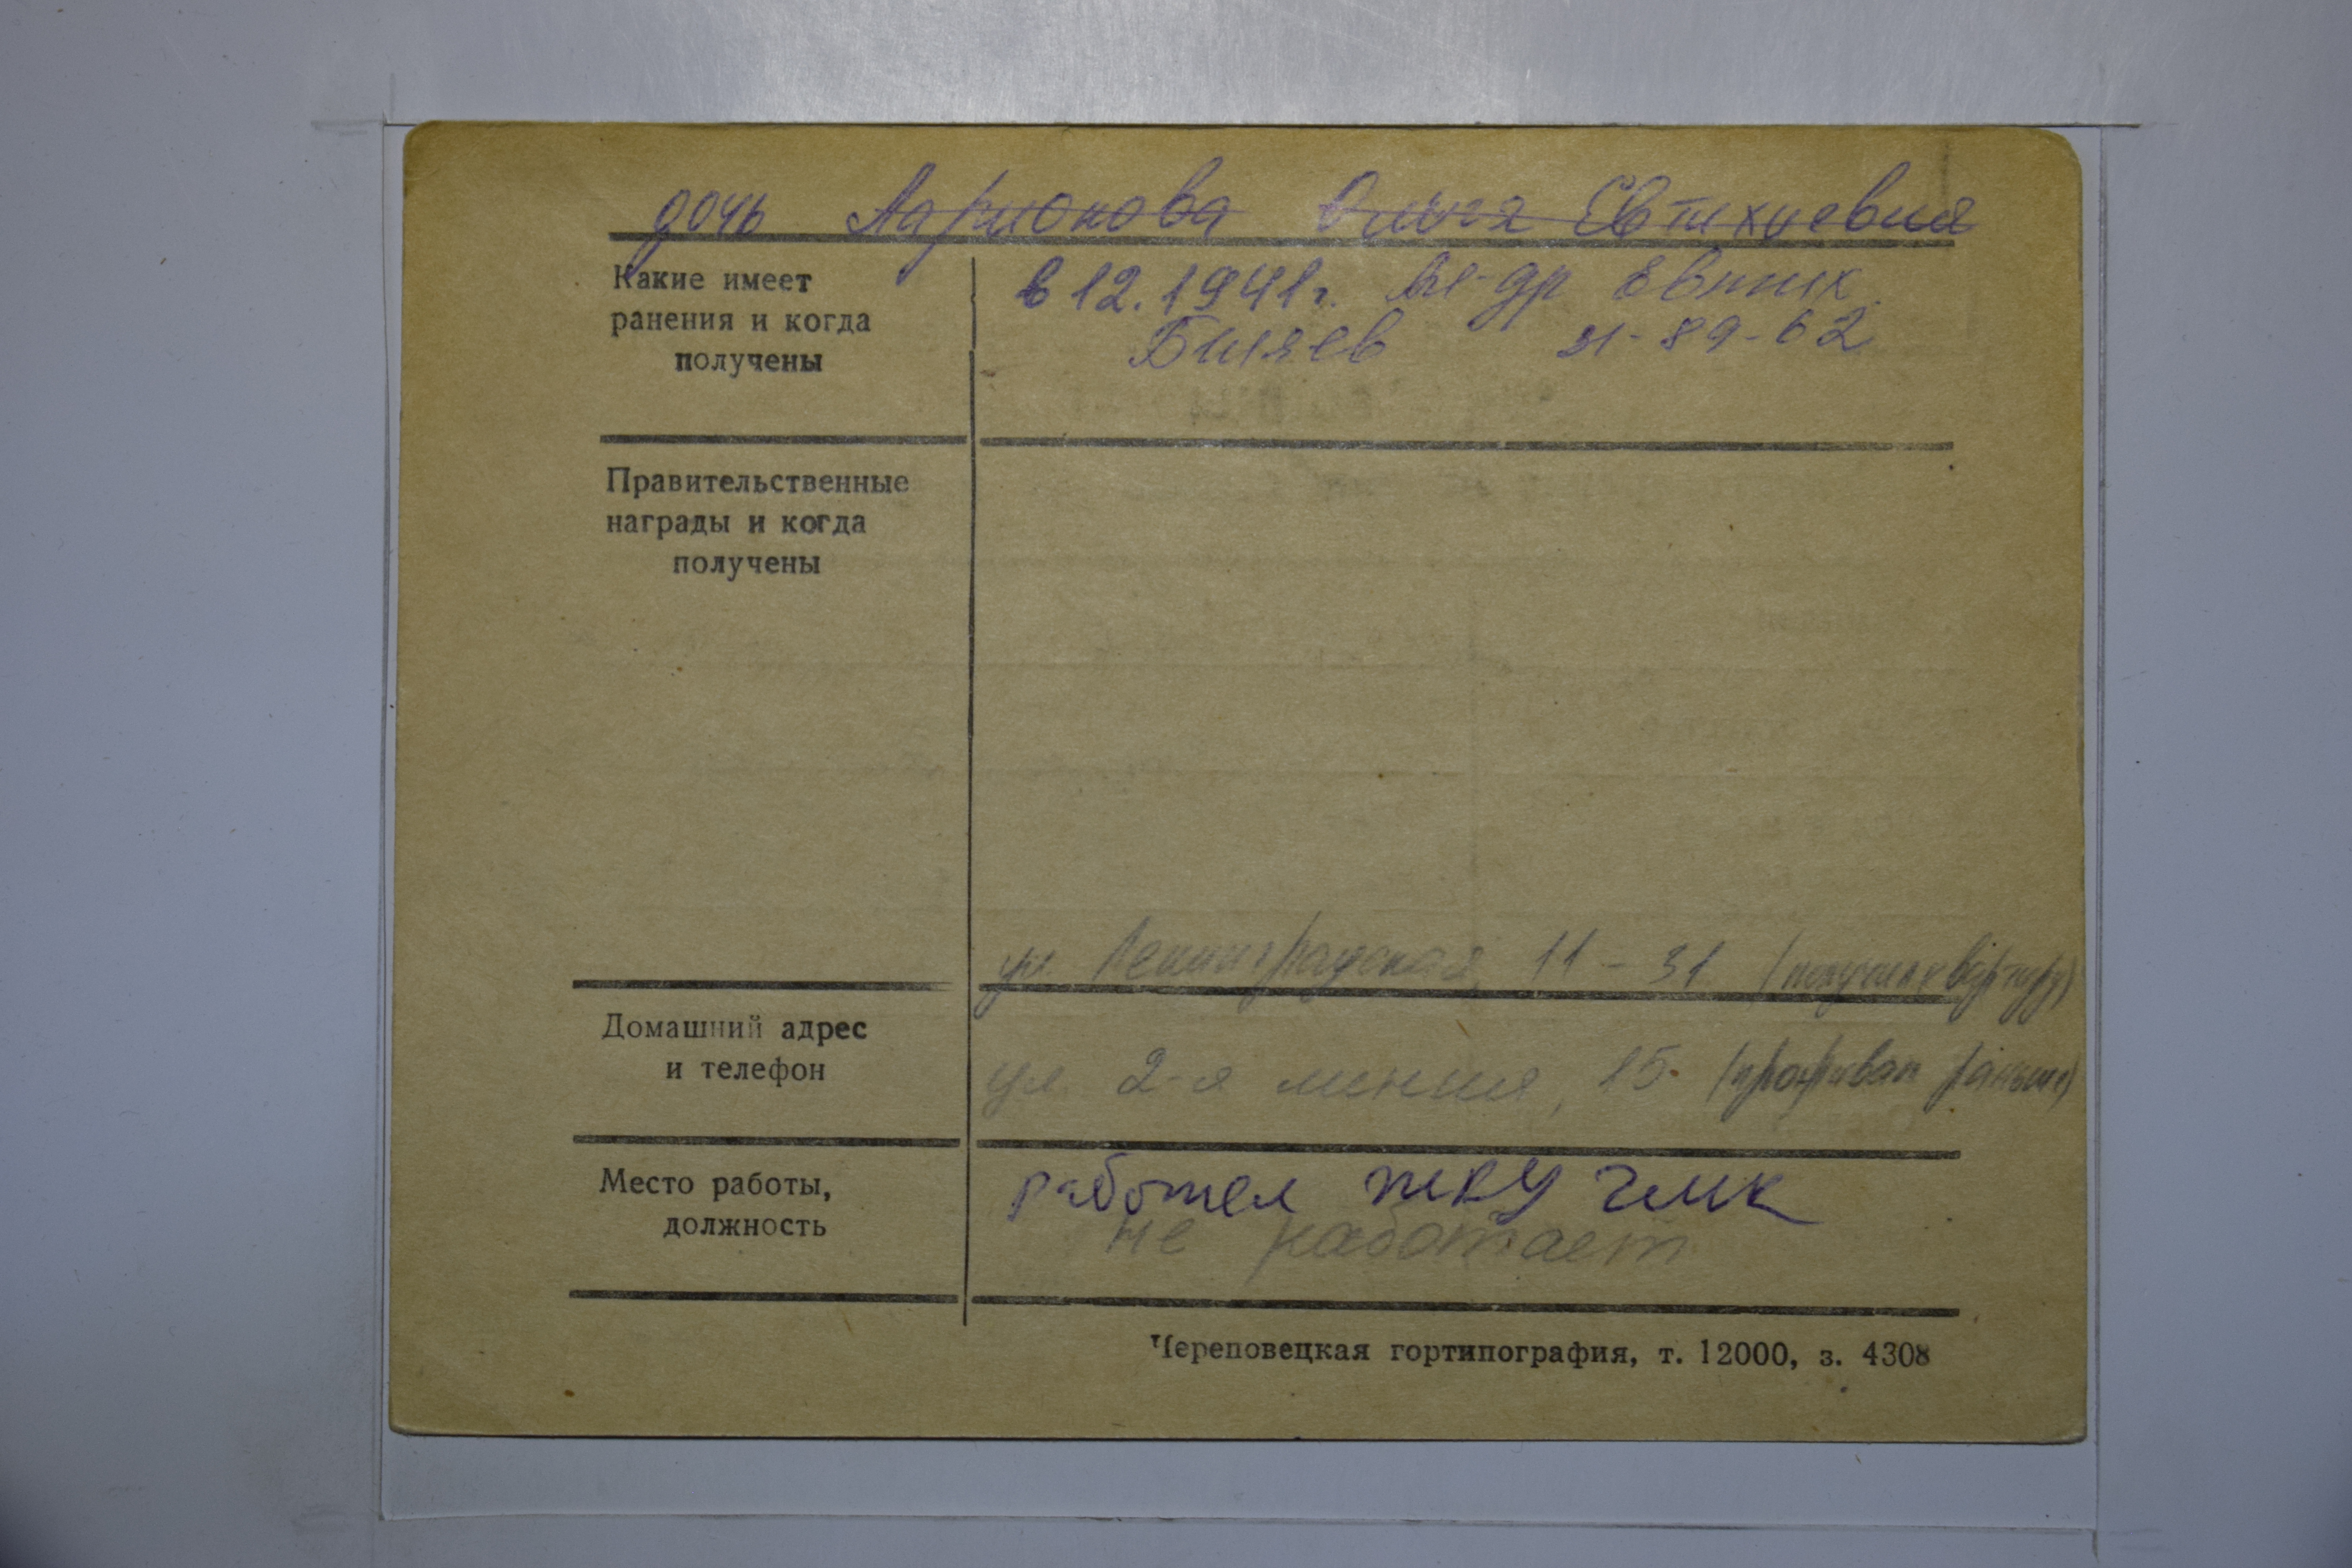 дочь Ларионова Ольга Евтихиевна
Какие имеет
ранения и когда
получены
в 12.1941г. Ал-др Евтих.
Биляев 31-89-62
Правительственные
награды и когда
получены
ул. Ленинградская, 11-31 (получил квартиру)
Домашний адрес
и телефон
ул. 2-я линия, 15 (проживал раньше)
Место работы,
должность
работал ЖКУ ЧМК
не работает
Череповецкая гортипография, т. 12000, з. 4308